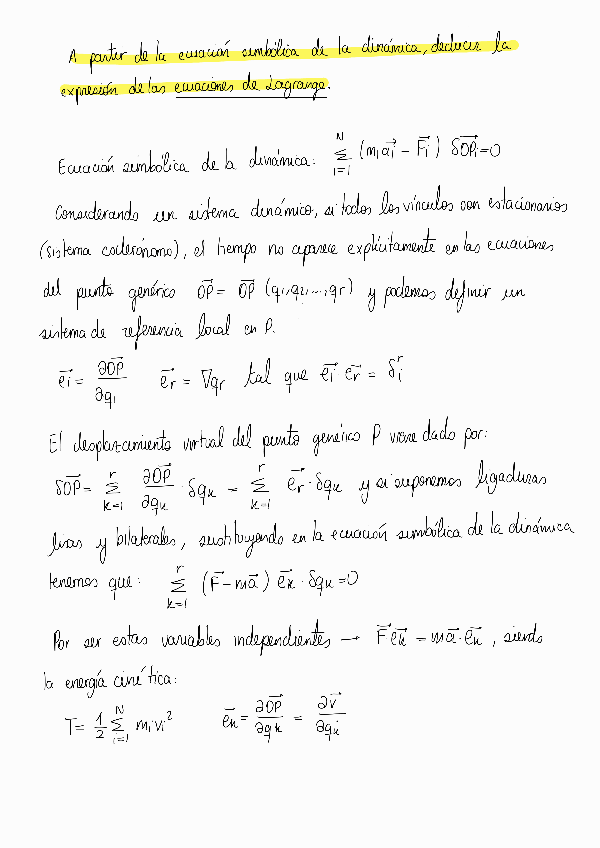 A partir de la ecuación simbólica de la dinámica, deducir la
expresión de las ecuaciones de Lagrange.
Ecuación simbólica de la dinámica: \sum_{i=1}^{N} (m_i \vec{a_i} - \vec{F_i}) δ\vec{OP_i} = 0
Considerando un sistema dinámico, si todos los vínculos son estacionarios
(sistema esclerónomo), el tiempo no aparece explícitamente en las ecuaciones
del punto genérico \vec{OP} = \vec{OP} (q_1, q_2, ..., q_r) y podemos definir un
sistema de referencia local en P.
\vec{e_i} = \frac{∂\vec{OP}}{∂q_i} \vec{e_r} = ∇q_r tal que \vec{e_i} \vec{e_r} = δ_i^r
El desplazamiento virtual del punto genérico P viene dado por:
δ\vec{OP} = \sum_{k=1}^{r} \frac{∂\vec{OP}}{∂q_k} · δq_k = \sum_{k=1}^{r} \vec{e_r} · δq_k y si suponemos ligaduras
lisas y bilaterales, sustituyendo en la ecuación simbólica de la dinámica
tenemos que: \sum_{k=1}^{r} (\vec{F} - m\vec{a}) \vec{e_k} · δq_k = 0
Por ser estas variables independientes → \vec{F} \vec{e_k} = m\vec{a} · \vec{e_k}, siendo
la energía cinética:
T = \frac{1}{2} \sum_{i=1}^{N} m_i v_i^2 \vec{e_k} = \frac{∂\vec{OP}}{∂q_k} = \frac{∂\vec{v}}{∂\dot{q_k}}